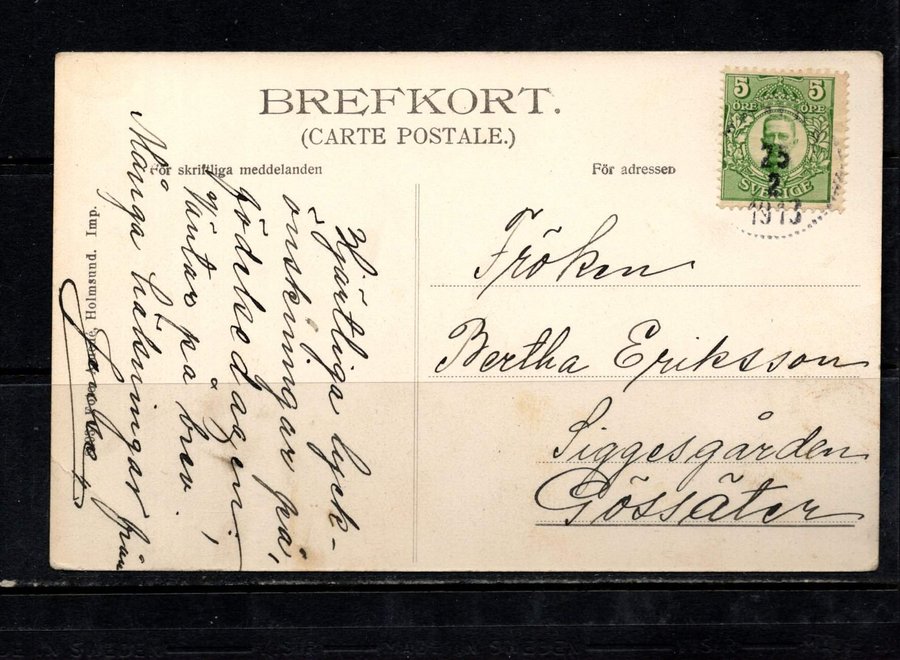 BREFKORT.
(CARTE POSTALE.)
För skriftliga meddelanden
För adressen
5 5
ÖRE ÖRE
SVERIGE
25
2
1913
Hjärtliga lyck-
önskningar på
födelsedagen
Väntar på brev
Många hälsningar från
Holmsund. Imp.
Fröken
Bertha Eriksson
Siggesgården
Gössäter